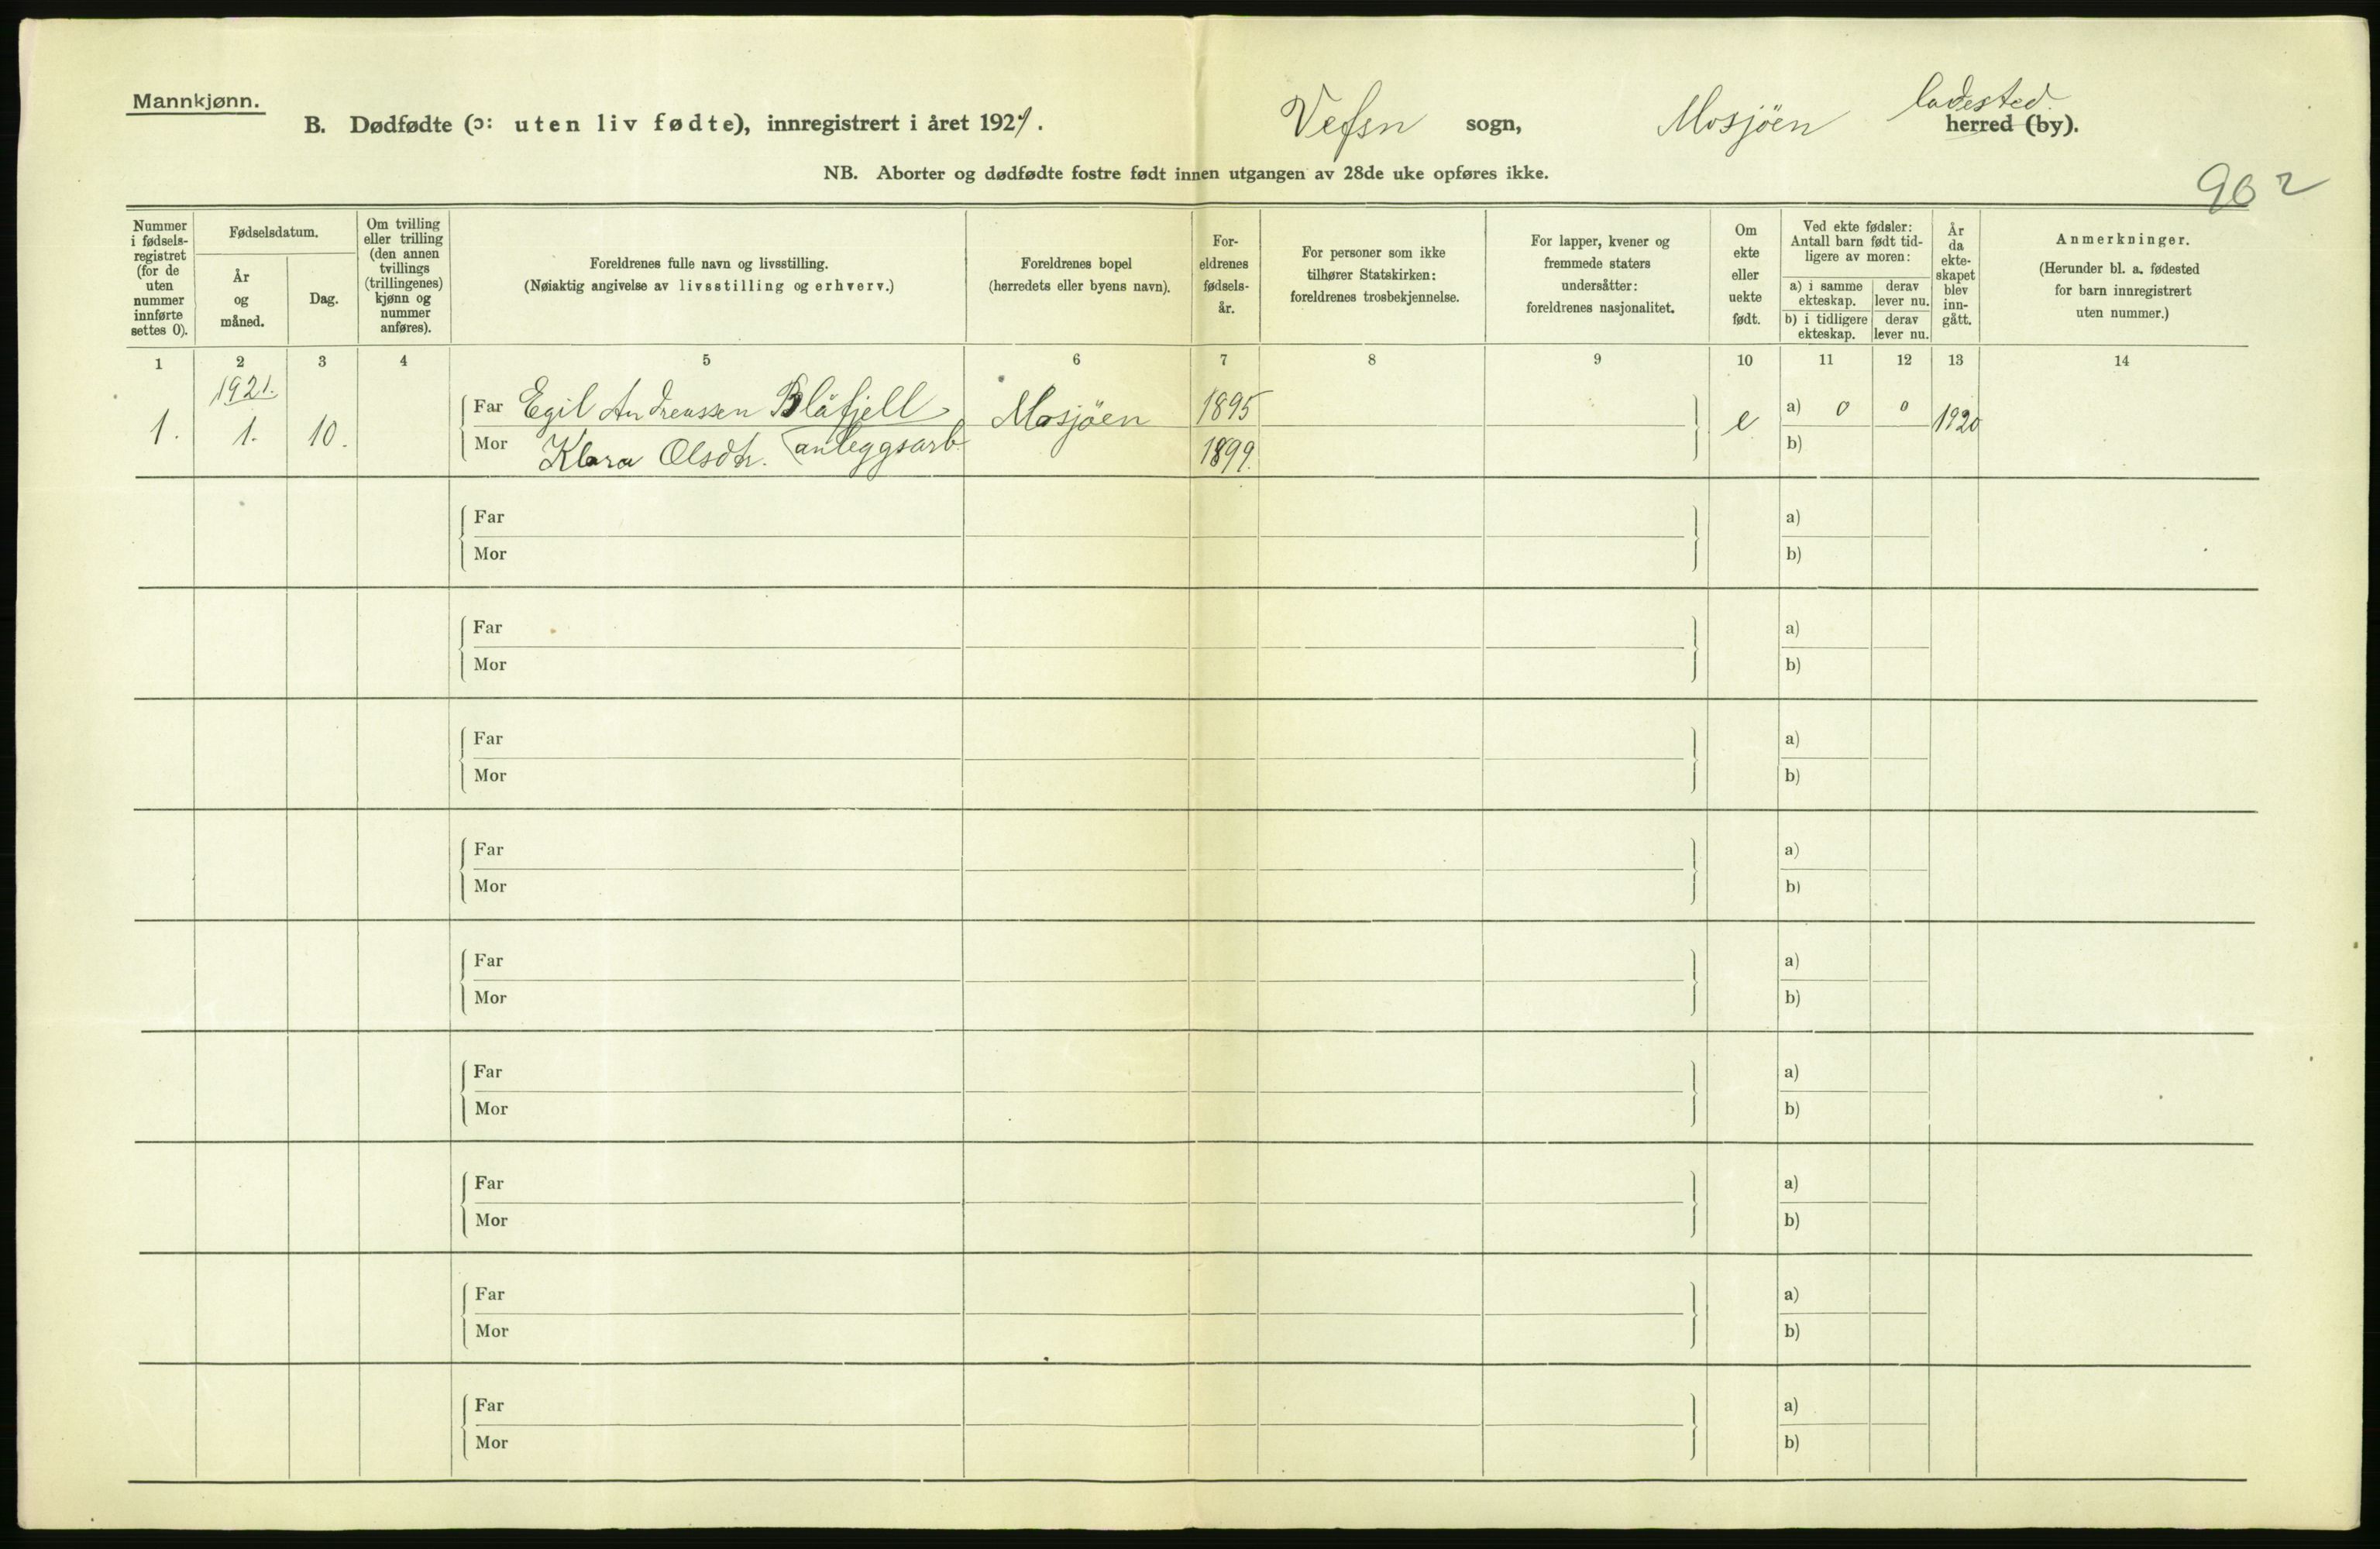 Mannkjønn.
B. Dødfødte (ɔ: uten liv fødte), innregistrert i året 1921. Vefsn sogn, Mosjöen ladested.
herred (by).
NB. Aborter og dødfødte fostre født innen utgangen av 28de uke opføres ikke.
902
Nummer
i fødsels-
registret
(for de
uten
nummer
innførte
settes 0).
Fødselsdatum.
År
og
måned.
Dag.
Om tvilling
eller trilling
(den annen
tvillings
(trillingenes)
kjønn og
nummer
anføres).
Foreldrenes fulle navn og livsstilling.
(Nøiaktig angivelse av livsstilling og erhverv.)
Foreldrenes bopel
(herredets eller byens navn).
For-
eldrenes
fødsels-
år.
For personer som ikke
tilhører Statskirken:
foreldrenes trosbekjennelse.
For lapper, kvener og
fremmede staters
undersåtter:
foreldrenes nasjonalitet.
Om
ekte
eller
uekte
født.
Ved ekte fødsler:
Antall barn født tid-
ligere av moren:
a) i samme
ekteskap.
derav
lever nu.
b) i tidligere
ekteskap.
derav
lever nu.
År
da
ekte-
skapet
blev
inn-
gått.
Anmerkninger.
(Herunder bl. a. fødested
for barn innregistrert
uten nummer.)
1 2 3 4 5 6 7 8 9 10 11 12 13 14
1921.
1. 1. 10.
Far Egil Andreassen Blåfjell Mosjöen 1895 e a) 0 0 1920
Mor Klara Olsdtr. anleggsarb. 1899. b)
Far a)
Mor b)
Far a)
Mor b)
Far a)
Mor b)
Far a)
Mor b)
Far a)
Mor b)
Far a)
Mor b)
Far a)
Mor b)
Far a)
Mor b)
Far a)
Mor b)